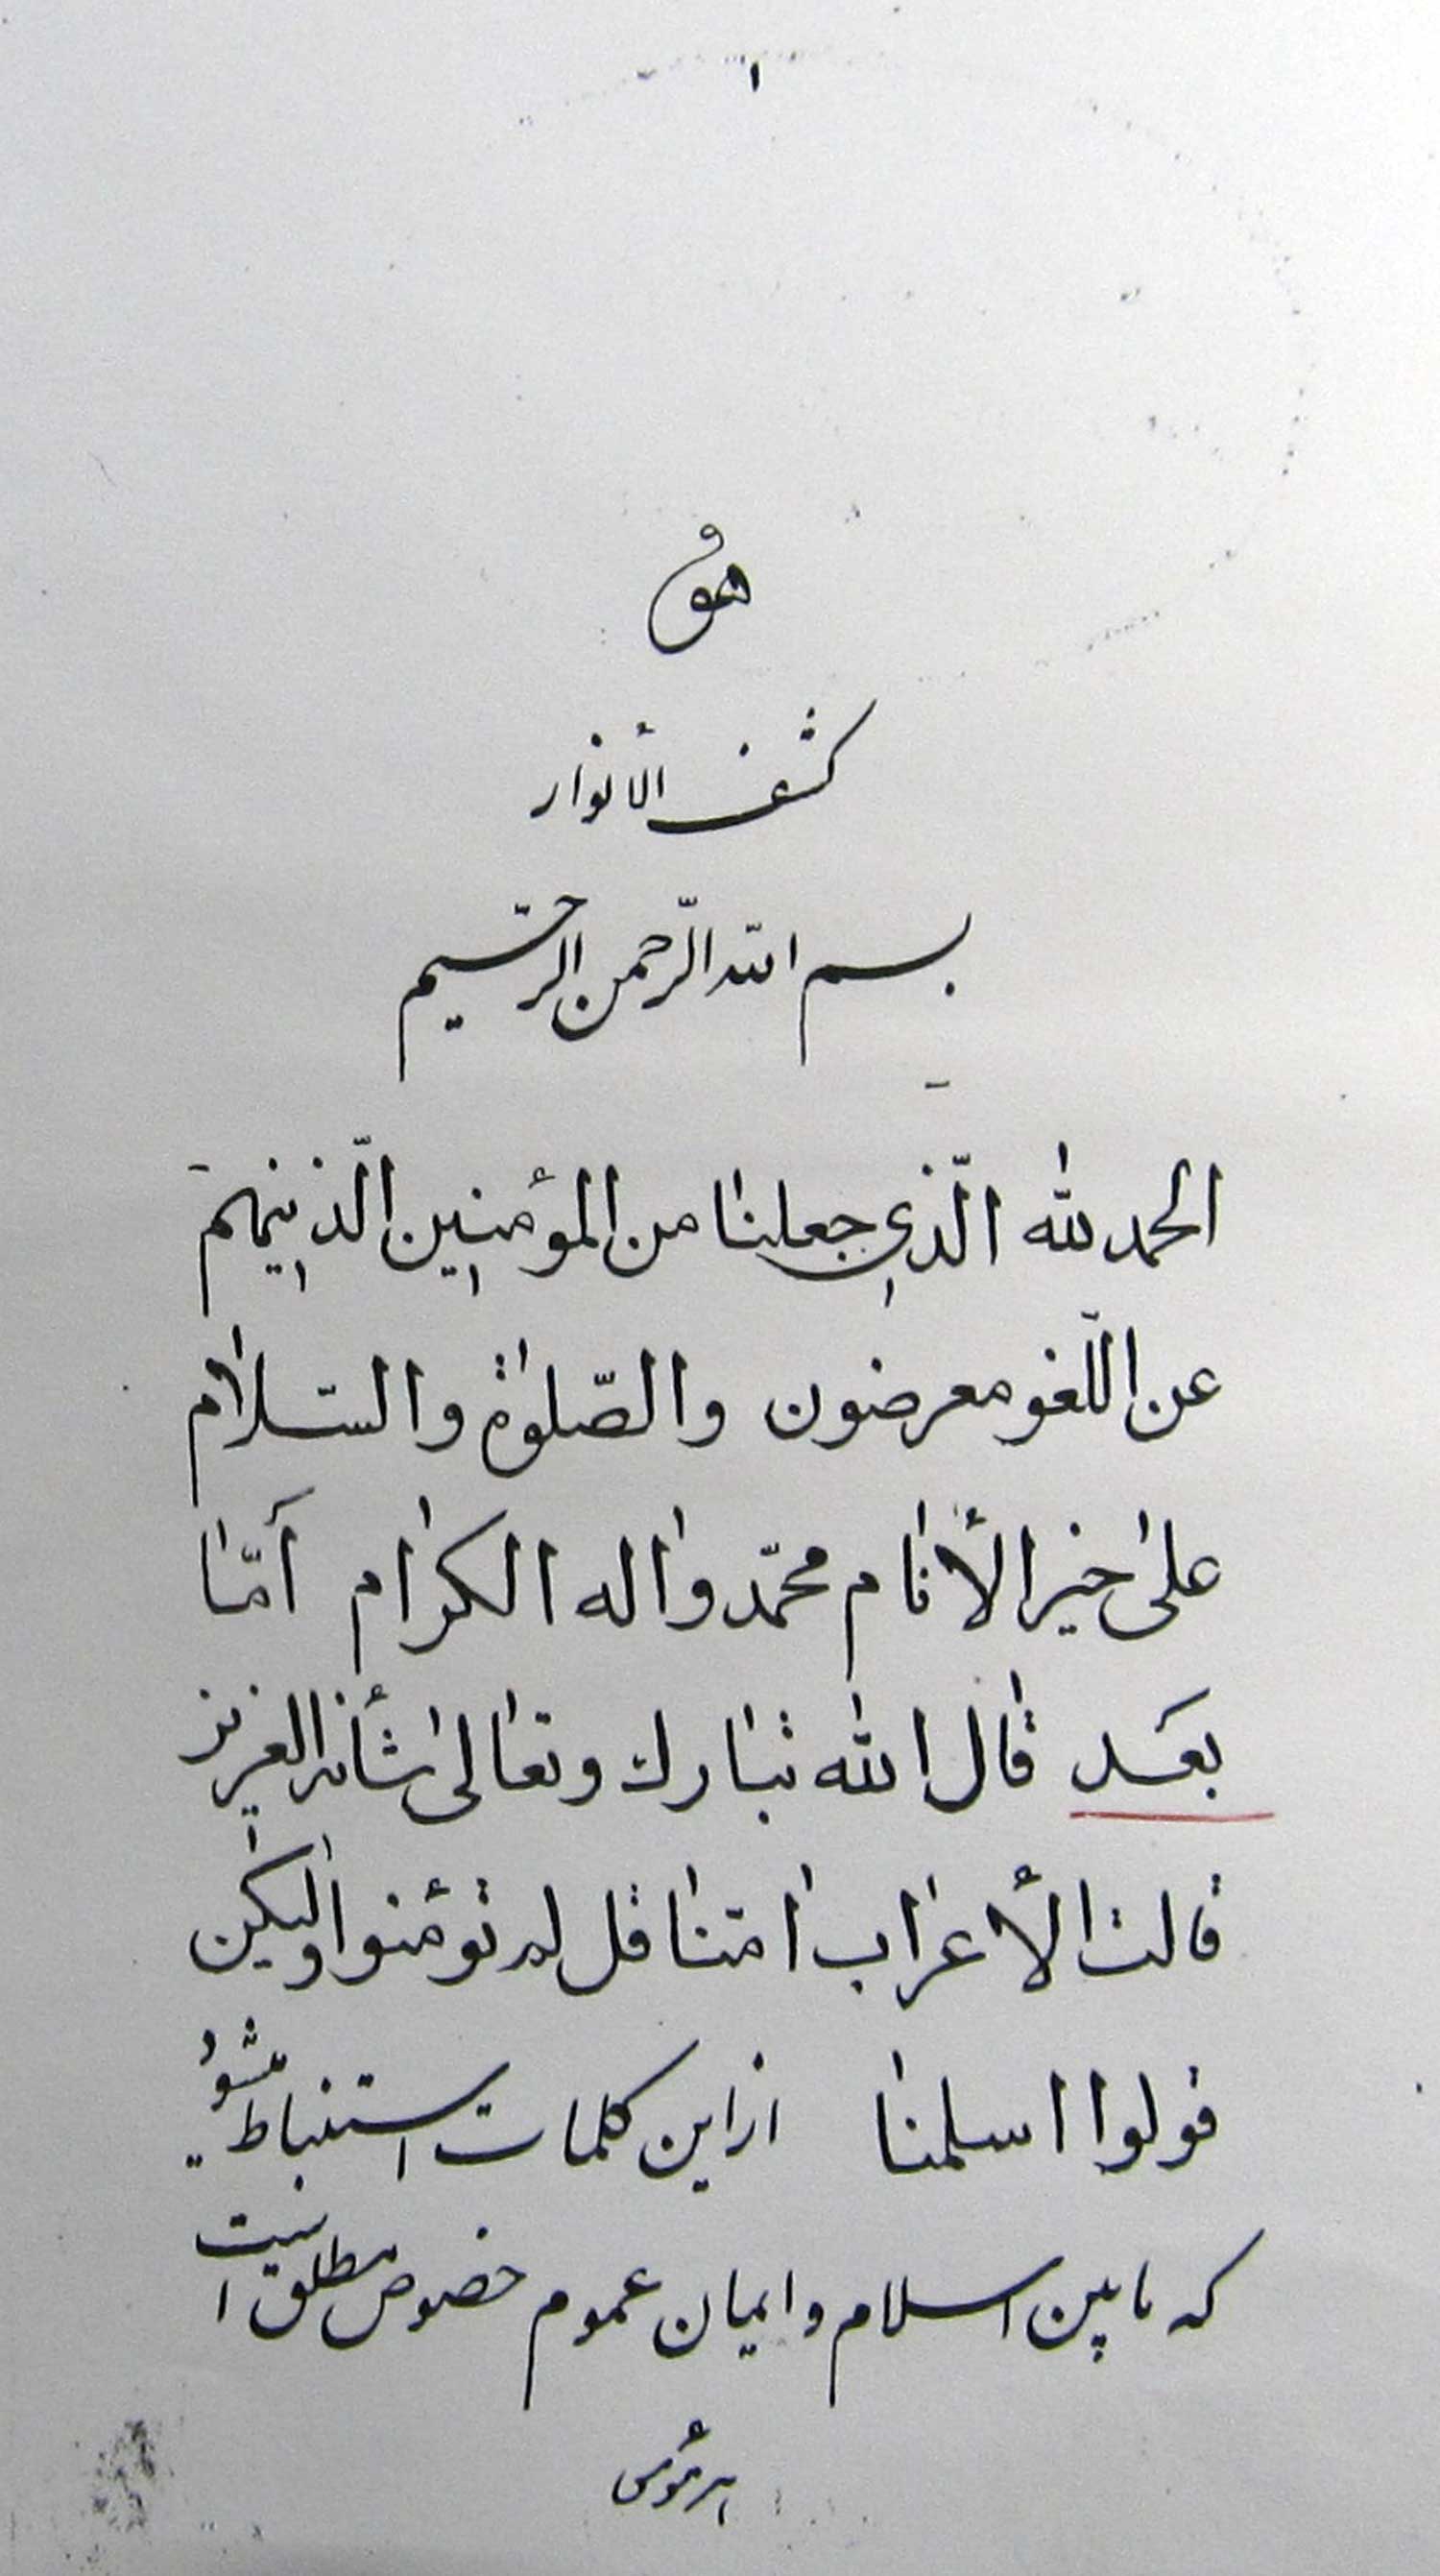 ١
هو
كشف الأنوار
بسم الله الرّحمن الرّحيم
الحمد لله الّذي جعلنا من المؤمنين الّذينهم
عن اللّغو معرضون والصّلوٰة والسّلام
علىٰ خير الأنام محمّد واٰله الكرام أمّا
بعد قال الله تبارك وتعالىٰ شأنه العزيز
قالت الأعراب اٰمنّا قل لم تؤمنوا ولٰكن
قولوا اسلمنا از این کلمات استنباط میشود
که مابین اسلام و ایمان عموم خصوص مطلق است
هر مؤمن